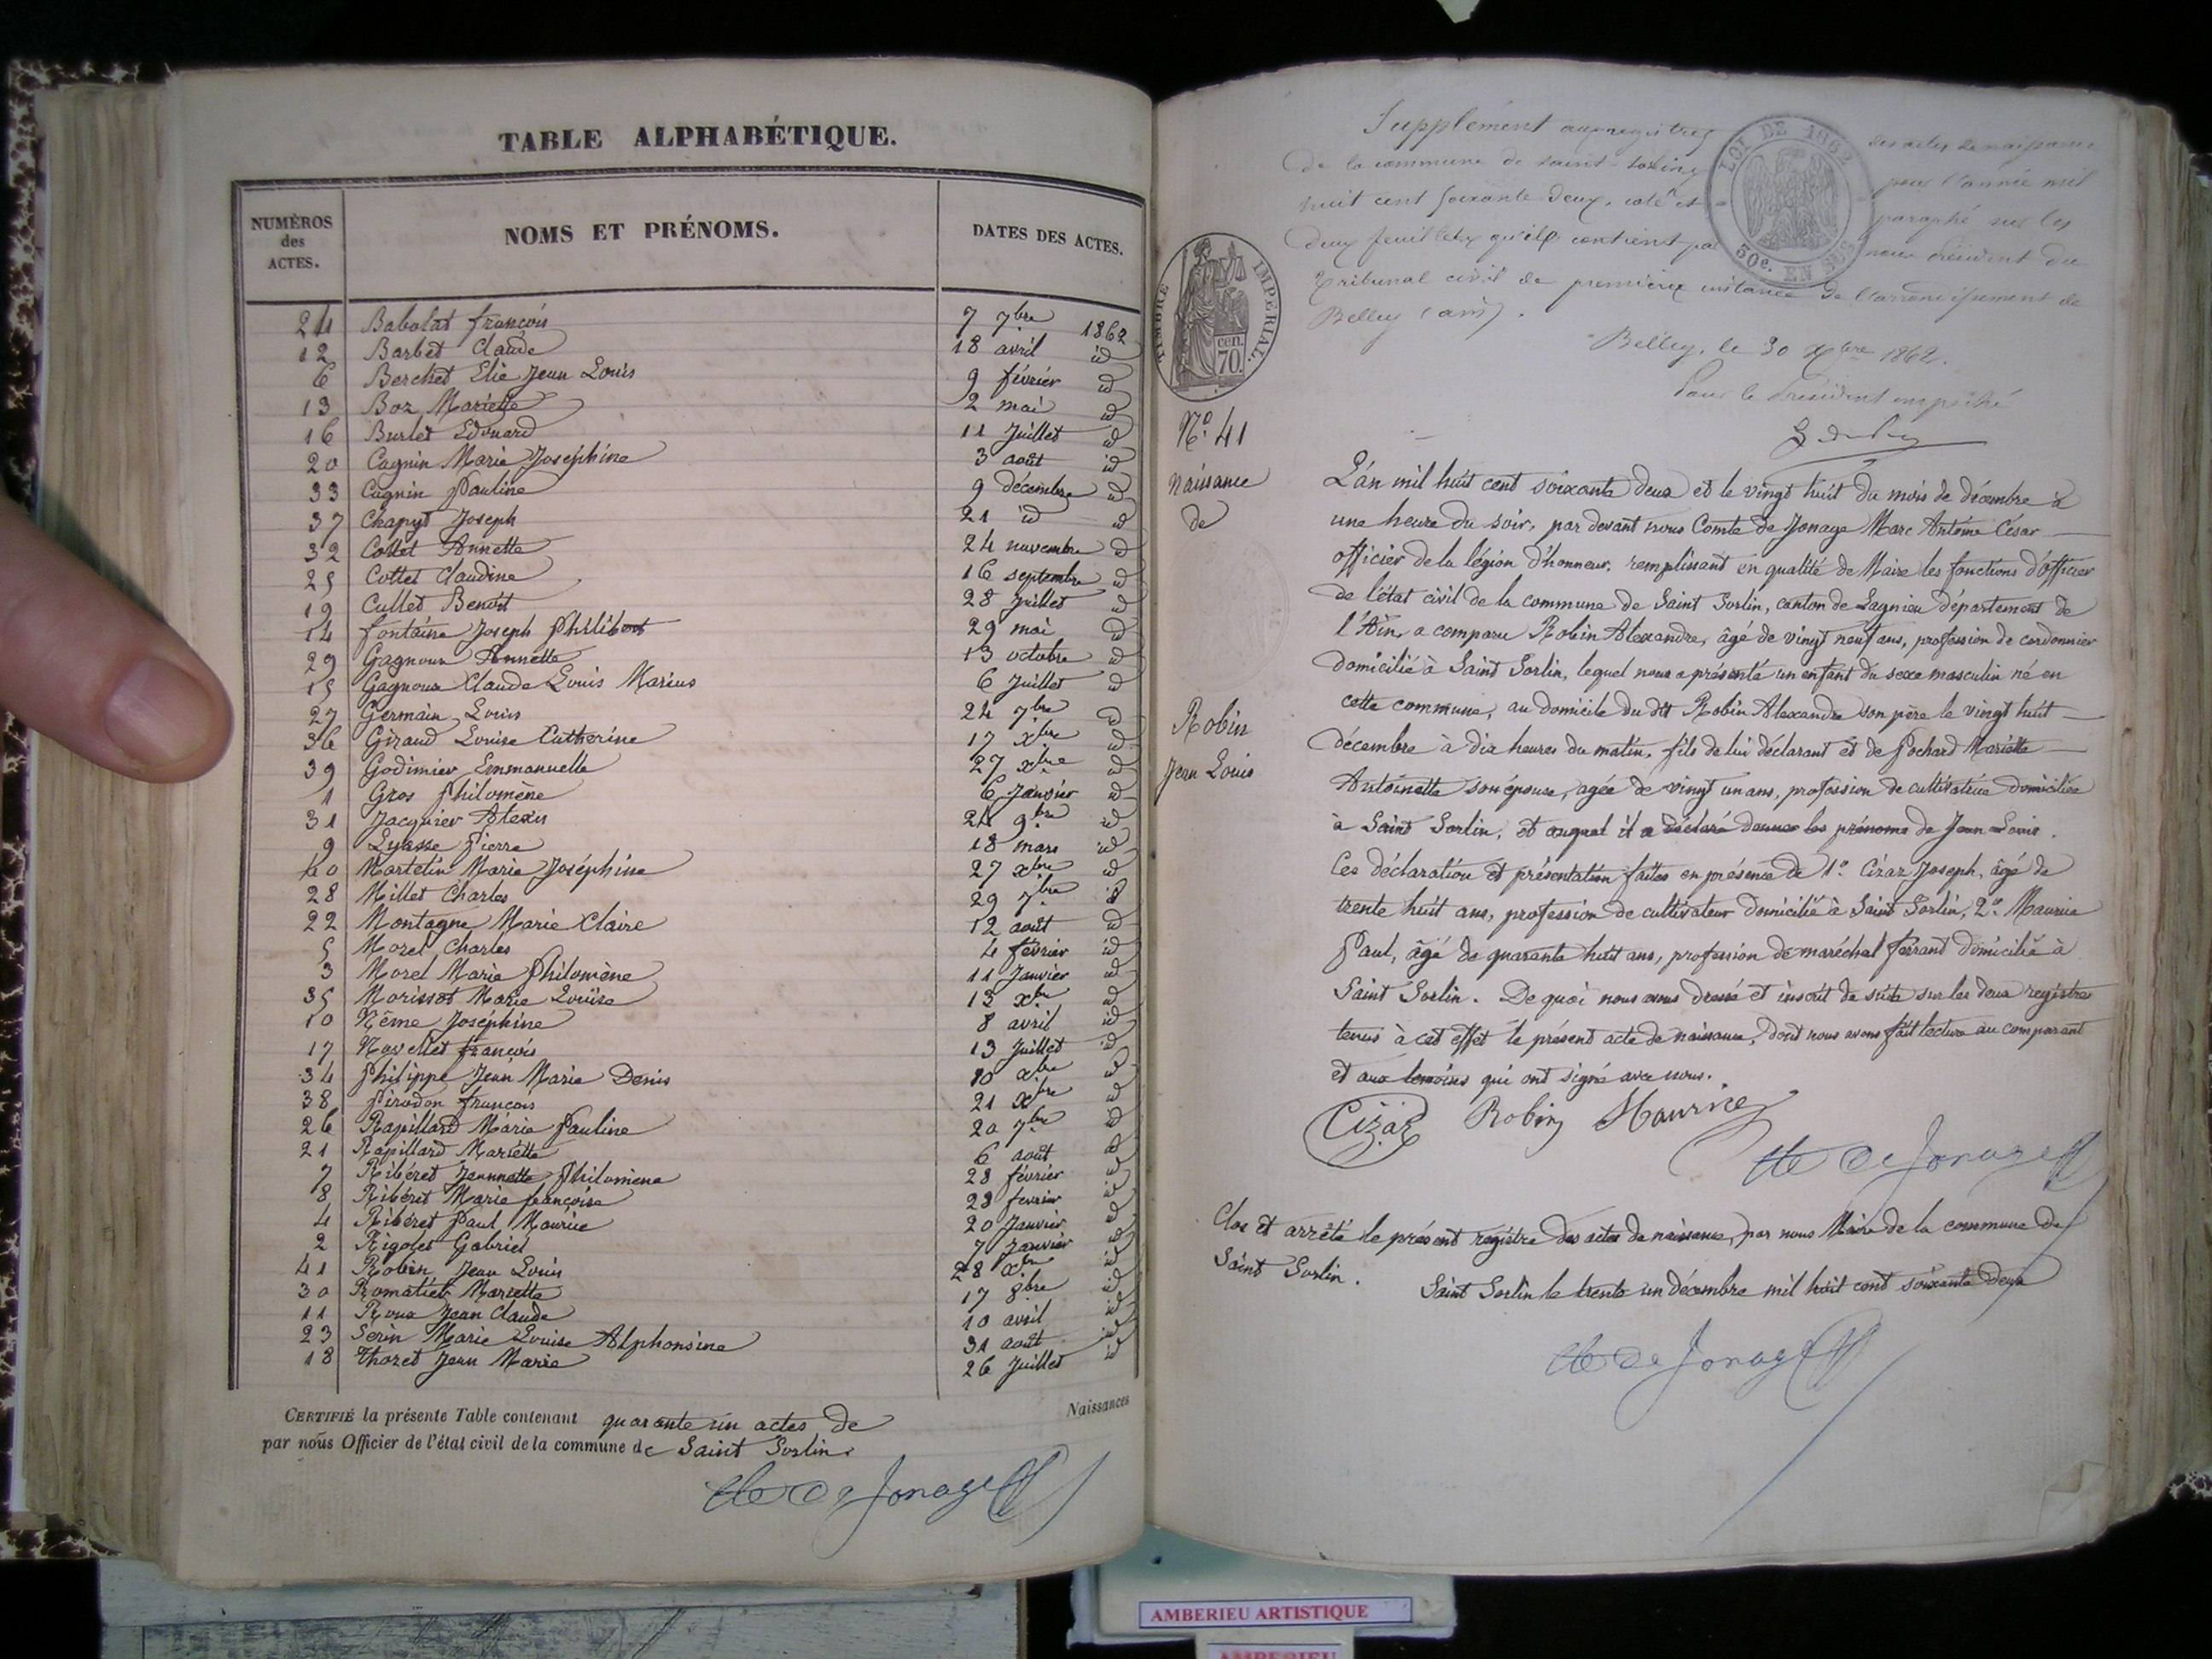 TABLE ALPHABÉTIQUE.
NUMÉROS des ACTES. NOMS ET PRÉNOMS. DATES DES ACTES.
24 Babolat françois 7 7bre 1862
12 Barbet Claude 18 avril id
6 Berchet Elie Jean Louis 9 février id
13 Boz Mariette 2 mai id
16 Burlet Edouard 11 Juillet id
20 Cagnin Marie Joséphine 3 août id
33 Cagnin Pauline 9 décembre id
37 Chapyt Joseph 21 id id
32 Collet Annette 24 novembre id
25 Cottet Claudine 16 septembre id
19 Cullet Benoît 28 Juillet id
14 fontaine Joseph Philibert 29 mai id
29 Gagnoux Annette 13 octobre id
15 Gagnoux Claude Louis Marius 6 Juillet id
27 Germain Louis 24 7bre id
36 Giraud Louise Catherine 17 Xbre id
39 Godimier Emmanuelle 27 xbre id
1 Gros Philomène 6 Janvier id
31 Jacquier Alexis 24 9bre id
9 Lyasse Pierre 18 mars id
40 Martelin Marie Joséphine 27 xbre id
28 Millet Charles 29 7bre id
22 Montagne Marie Claire 12 août id
5 Morel Charles 4 février id
3 Morel Marie Philomène 11 Janvier id
35 Morissot Marie Louise 13 xbre id
10 Nême Joséphine 8 avril id
17 Navellet françois 13 Juillet id
34 Philippe Jean Marie Denis 10 xbre id
38 Pirodon françois 21 xbre id
26 Rapillard Marie Pauline 20 7bre id
21 Rapillard Mariette 6 août id
7 Ribéret Jeannette Philomène 28 février id
8 Ribéret Marie françoise 28 fevrier id
4 Ribéret Paul Maurice 20 Janvier id
2 Rigolet Gabriel 7 Janvier id
41 Robin Jean Louis 28 Xbre id
30 Romatier Mariette 17 8bre id
11 Roux Jean Claude 10 avril id
23 Serin Marie Louise Alphonsine 31 août id
18 Thozet Jean Marie 26 Juillet id
CERTIFIÉ la présente Table contenant quarante un actes de Naissances
par nous Officier de l'état civil de la commune de Saint Sorlin.
Cte De Jonage
Supplément aux registres des actes de naissance
de la commune de saint-sorlin pour l'année mil
huit cent soixante deux, coté et paraphé sur les
deux feuillets qu'il contient par nous président du
Tribunal civil de première instance de l'arrondissement de
Belley (ain).
Belley, le 30 Xbre 1862.
Pour le Président empêché
LOI DE 1862
50c. EN SUS
TIMBRE IMPÉRIAL.
cen. 70.
No. 41
naissance
de
Robin
Jean Louis
L'an mil huit cent soixante deux et le vingt huit du mois de décembre à
une heure du soir, par devant nous Comte de Jonage Marc Antoine César
officier de la légion d'honneur, remplissant en qualité de Maire les fonctions d'officier
de l'état civil de la commune de Saint Sorlin, canton de Lagnieu département de
l'Ain, a comparu Robin Alexandre, âgé de vingt neuf ans, profession de cordonnier
domicilié à Saint Sorlin, lequel nous a présenté un enfant du sexe masculin né en
cette commune, au domicile du dit Robin Alexandre son père le vingt huit
décembre à dix heures du matin, fils de lui déclarant et de Pochard Mariette
Antoinette son épouse, agée de vingt un ans, profession de cultivatrice domiciliée
à Saint Sorlin, et auquel il a déclaré donner les prénoms de Jean Louis.
Ces déclaration et présentation faites en présence de 1o. Cizaz Joseph, âgé de
trente huit ans, profession de cultivateur domicilié à Saint Sorlin, 2o. Maurice
Paul, âgé de quarante huit ans, profession de maréchal ferrant domicilié à
Saint Sorlin. De quoi nous avons dressé et inscrit de suite sur les deux registres
tenus à cet effet le présent acte de naissance, dont nous avons fait lecture au comparant
et aux témoins qui ont signé avec nous.
Cizaz Robin Maurice
Cte De Jonage
Clos et arrêté le présent registre des actes de naissance, par nous Maire de la commune de
Saint Sorlin.
Saint Sorlin le trente un décembre mil huit cent soixante deux
Cte De Jonage
AMBERIEU ARTISTIQUE
AMBERIEU